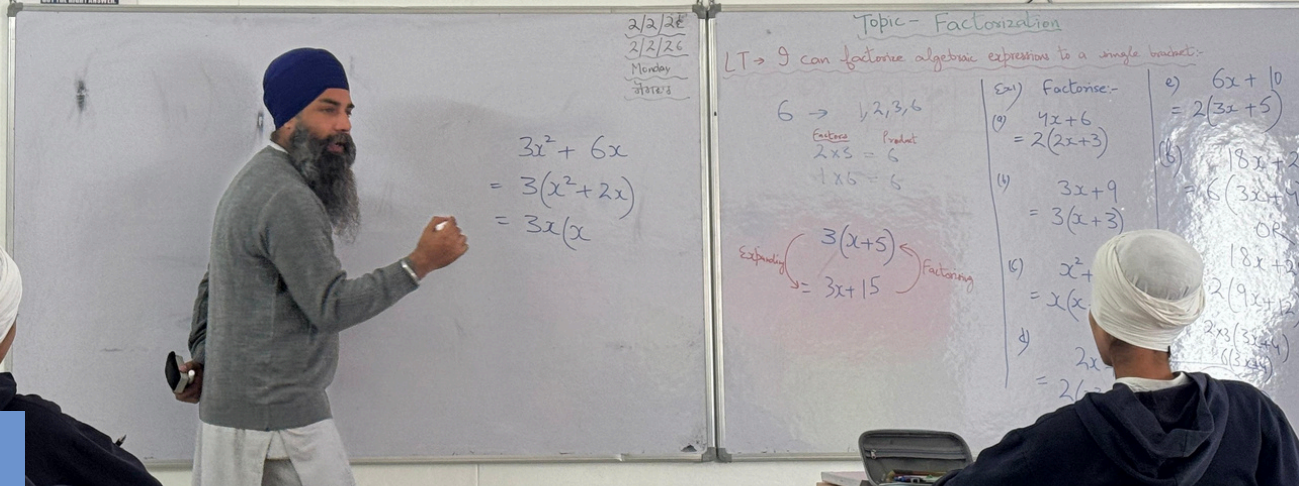 2/2/26
2/2/26
Monday
ਸੋਮਵਾਰ
3x² + 6x
= 3(x² + 2x)
= 3x(x
Topic - Factorization
LT → I can factorise algebraic expressions to a single bracket:-
6 → 1,2,3,6
Factors Product
2 x 3 = 6
1 x 6 = 6
3(x+5)
= 3x+15
Expanding
Factorising
Ex1) Factorise:-
(a) 4x+6
= 2(2x+3)
(b) 3x+9
= 3(x+3)
(c) x²+
= x(x
d) 2x
= 2(
e) 6x + 10
= 2(3x+5)
18x + 2
= 6(3x+4
OR
18x + 2
2(9x+12
2x3(3x+4)
6(3x+4)